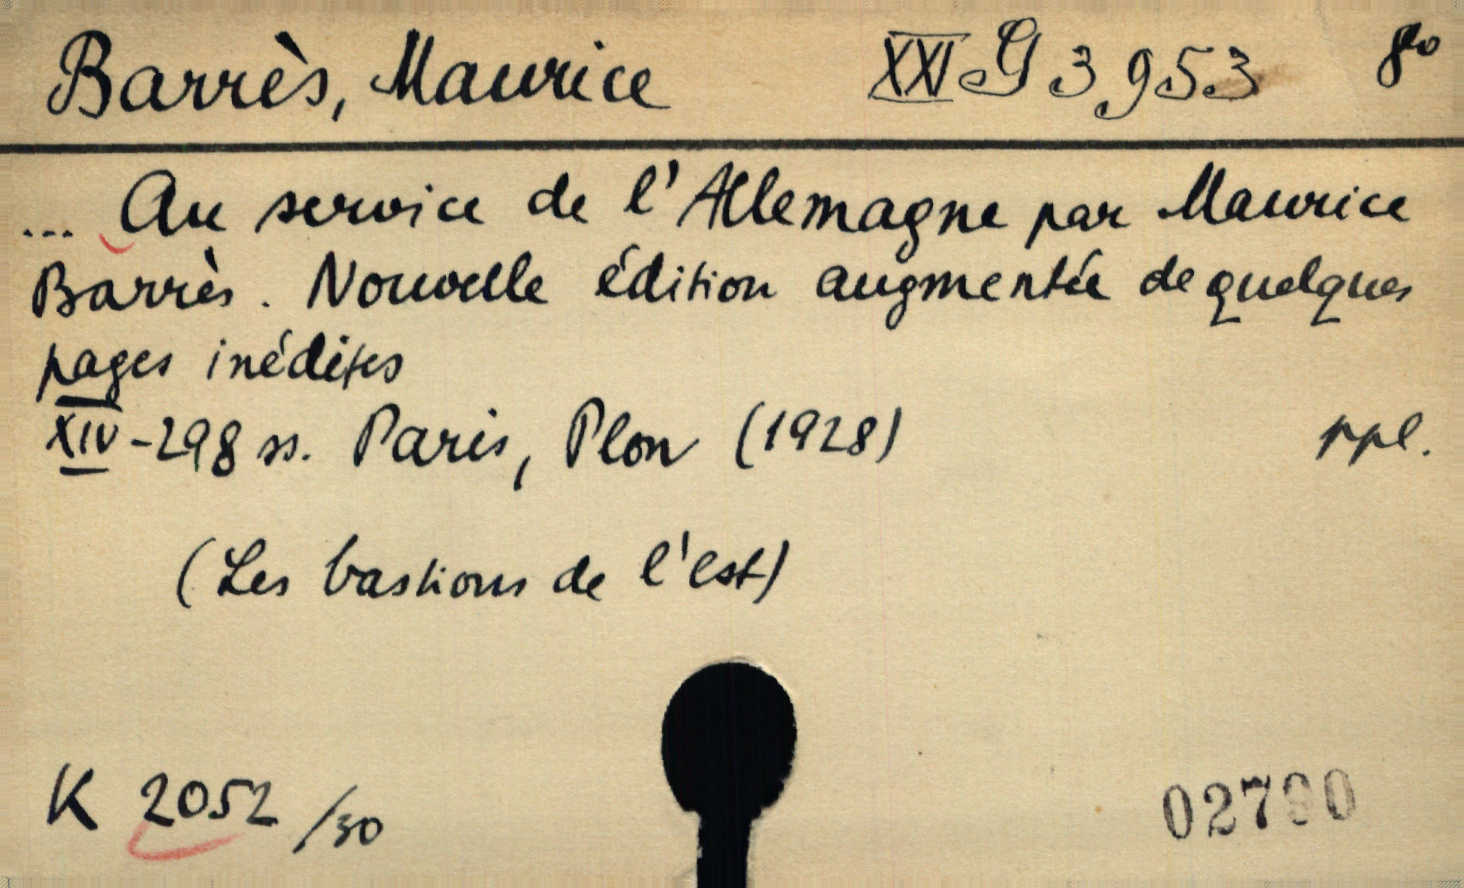 Barrès, Maurice XXI G 3953 8º
... Au service de l'Allemagne par Maurice
Barrès. Nouvelle édition augmentée de quelques
pages inédites
XIV-298 ss. Paris, Plon (1928) ppl.
(Les bastions de l'est)
K 2052/30
02790